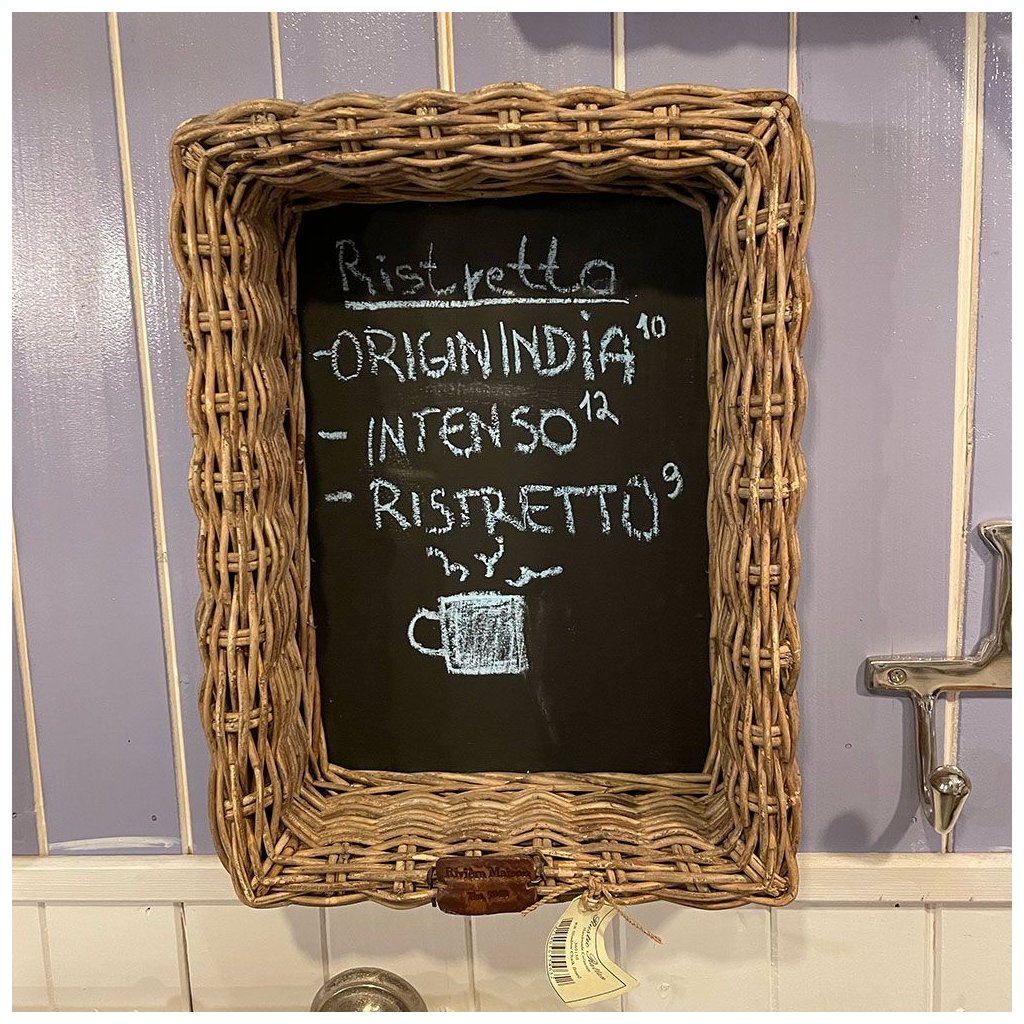 Ristretto
-ORIGIN INDIA 10
- INTENSO 12
- RISTRETTO 9
Rivièra Maison
Rustic Rattan